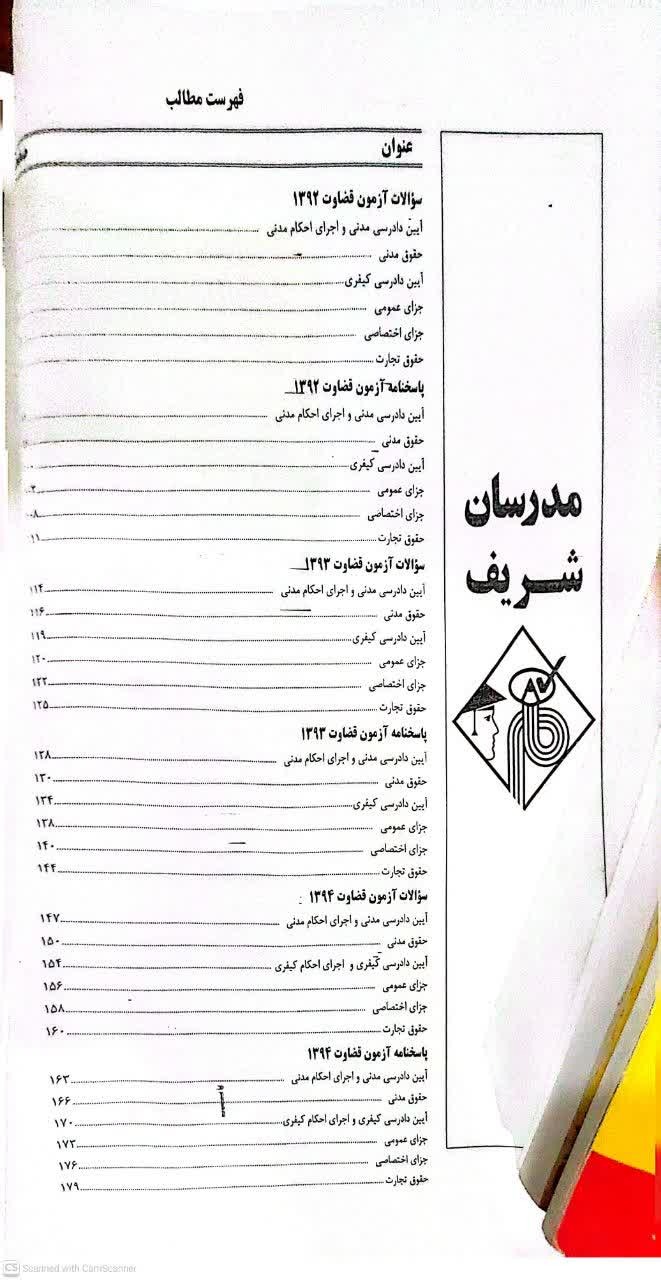 فهرست مطالب
عنوان
سؤالات آزمون قضاوت ۱۳۹۲
آیین دادرسی مدنی و اجرای احکام مدنی
حقوق مدنی
آیین دادرسی کیفری
جزای عمومی
جزای اختصاصی
حقوق تجارت
پاسخنامه آزمون قضاوت ۱۳۹۲
آیین دادرسی مدنی و اجرای احکام مدنی
حقوق مدنی
آیین دادرسی کیفری
جزای عمومی
جزای اختصاصی
حقوق تجارت
سؤالات آزمون قضاوت ۱۳۹۳
آیین دادرسی مدنی و اجرای احکام مدنی ۱۱۴
حقوق مدنی ۱۱۶
آیین دادرسی کیفری ۱۱۹
جزای عمومی ۱۲۰
جزای اختصاصی ۱۲۲
حقوق تجارت ۱۲۵
پاسخنامه آزمون قضاوت ۱۳۹۳
آیین دادرسی مدنی و اجرای احکام مدنی ۱۲۸
حقوق مدنی ۱۳۰
آیین دادرسی کیفری ۱۳۴
جزای عمومی ۱۳۸
جزای اختصاصی ۱۴۰
حقوق تجارت ۱۴۴
سؤالات آزمون قضاوت ۱۳۹۴
آیین دادرسی مدنی و اجرای احکام مدنی ۱۴۷
حقوق مدنی ۱۵۰
آیین دادرسی کیفری و اجرای احکام کیفری ۱۵۴
جزای عمومی ۱۵۶
جزای اختصاصی ۱۵۸
حقوق تجارت ۱۶۰
پاسخنامه آزمون قضاوت ۱۳۹۴
آیین دادرسی مدنی و اجرای احکام مدنی ۱۶۳
حقوق مدنی ۱۶۶
آیین دادرسی کیفری و اجرای احکام کیفری ۱۷۰
جزای عمومی ۱۷۳
جزای اختصاصی ۱۷۶
حقوق تجارت ۱۷۹
مدرسان
شریف
CS Scanned with CamScanner